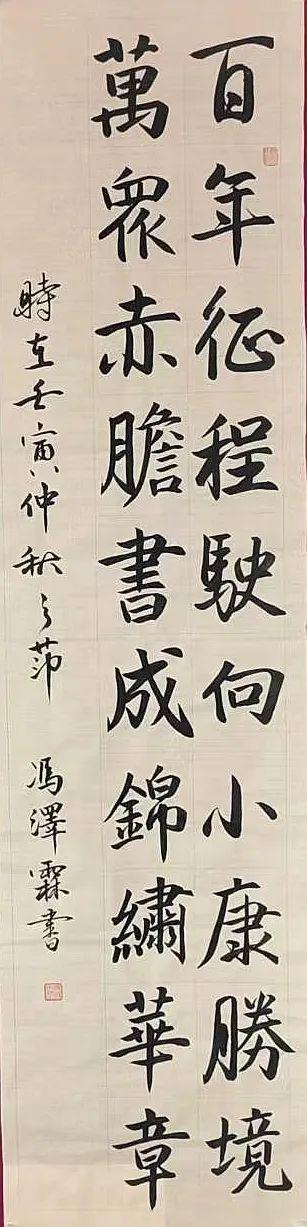 百年征程駛向小康勝境
萬眾赤膽書成錦繡華章
時在壬寅仲秋之節 馮澤霖書